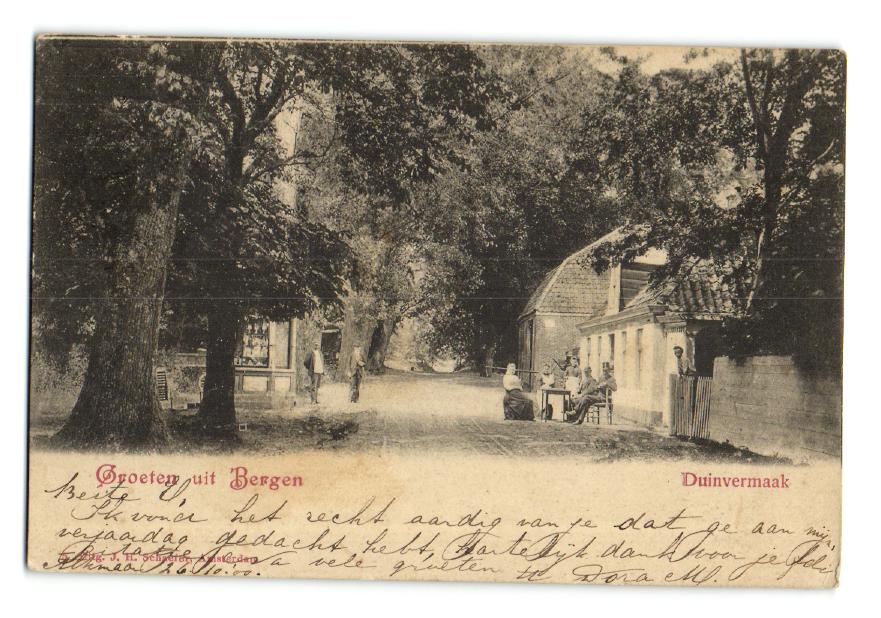 Groeten uit Bergen
Duinvermaak
Beste
Ik vond het recht aardig van je dat ge aan mijn
verjaardag gedacht hebt, Hartelijk dank voor je
Uitg. J. H. Schaefer, Amsterdam
Alkmaar 26/10.00. vele groeten Dora M.